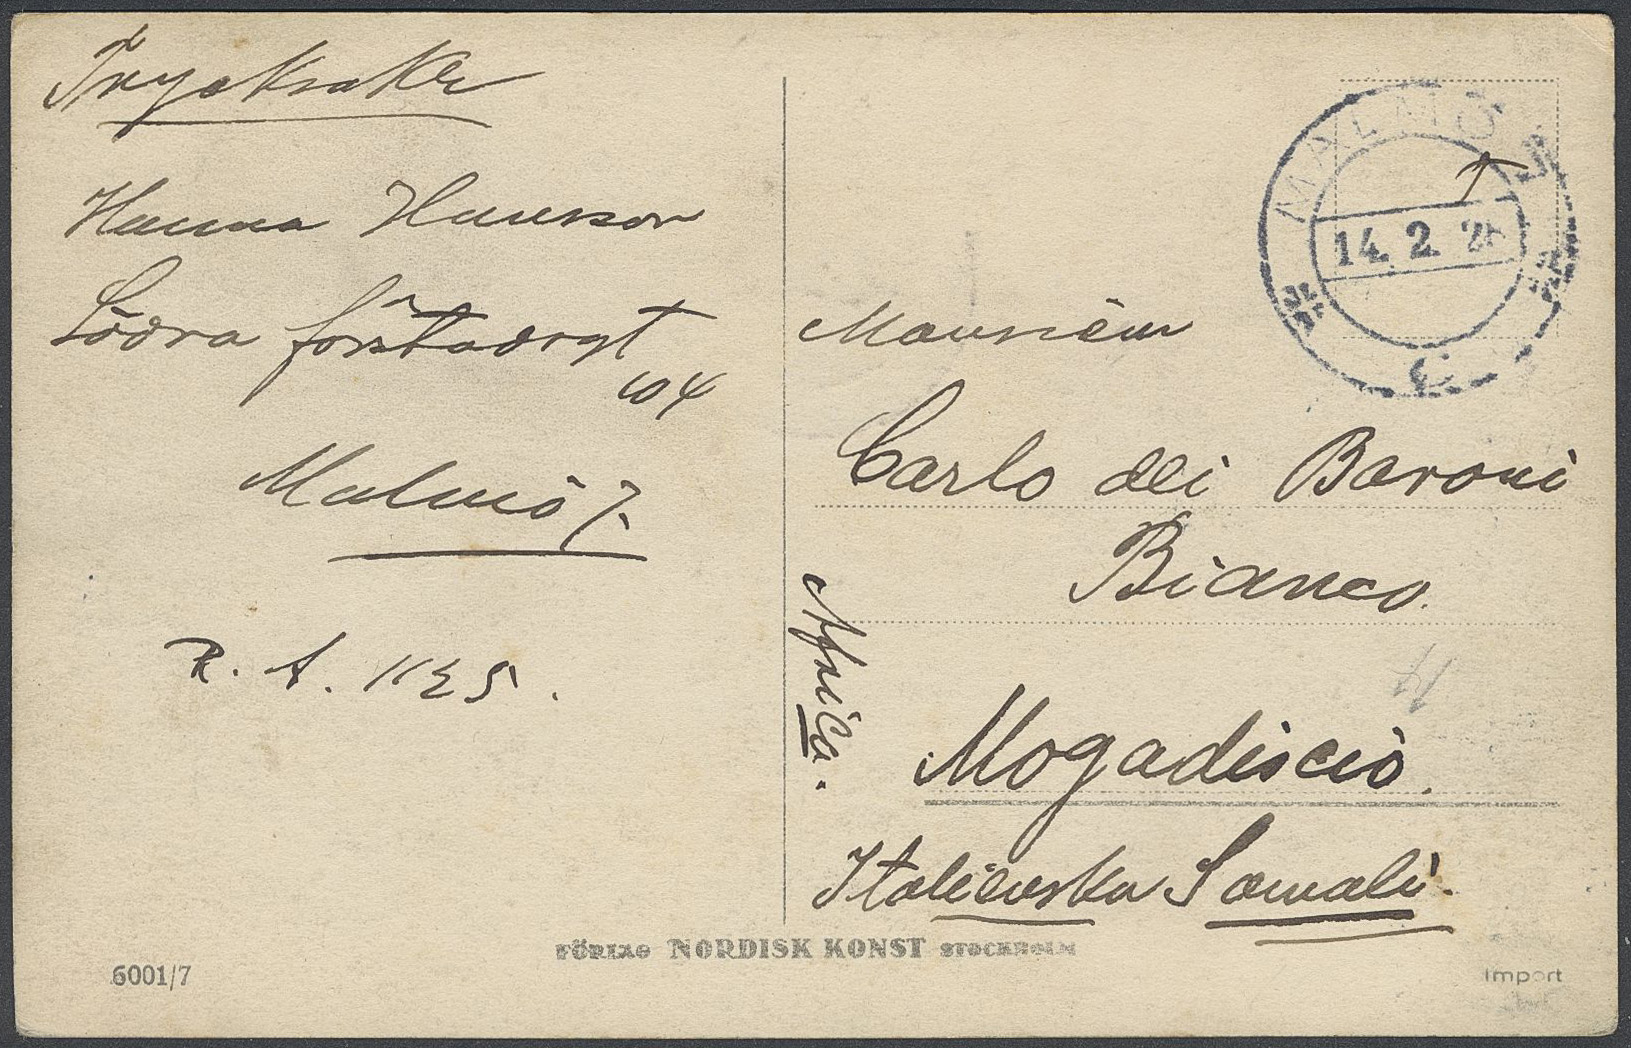 Trycksaker
Hanna Hansson
Södra förstadsgt
104
Malmö 7.
R. A. 1125.
MALMÖ
14. 2. 2
C
Monsieur
Carlo dei Baroni
Bianco.
Africa.
Mogadiscio.
Italienska Somali.
FÖRLAG NORDISK KONST STOCKHOLM
6001/7
Import